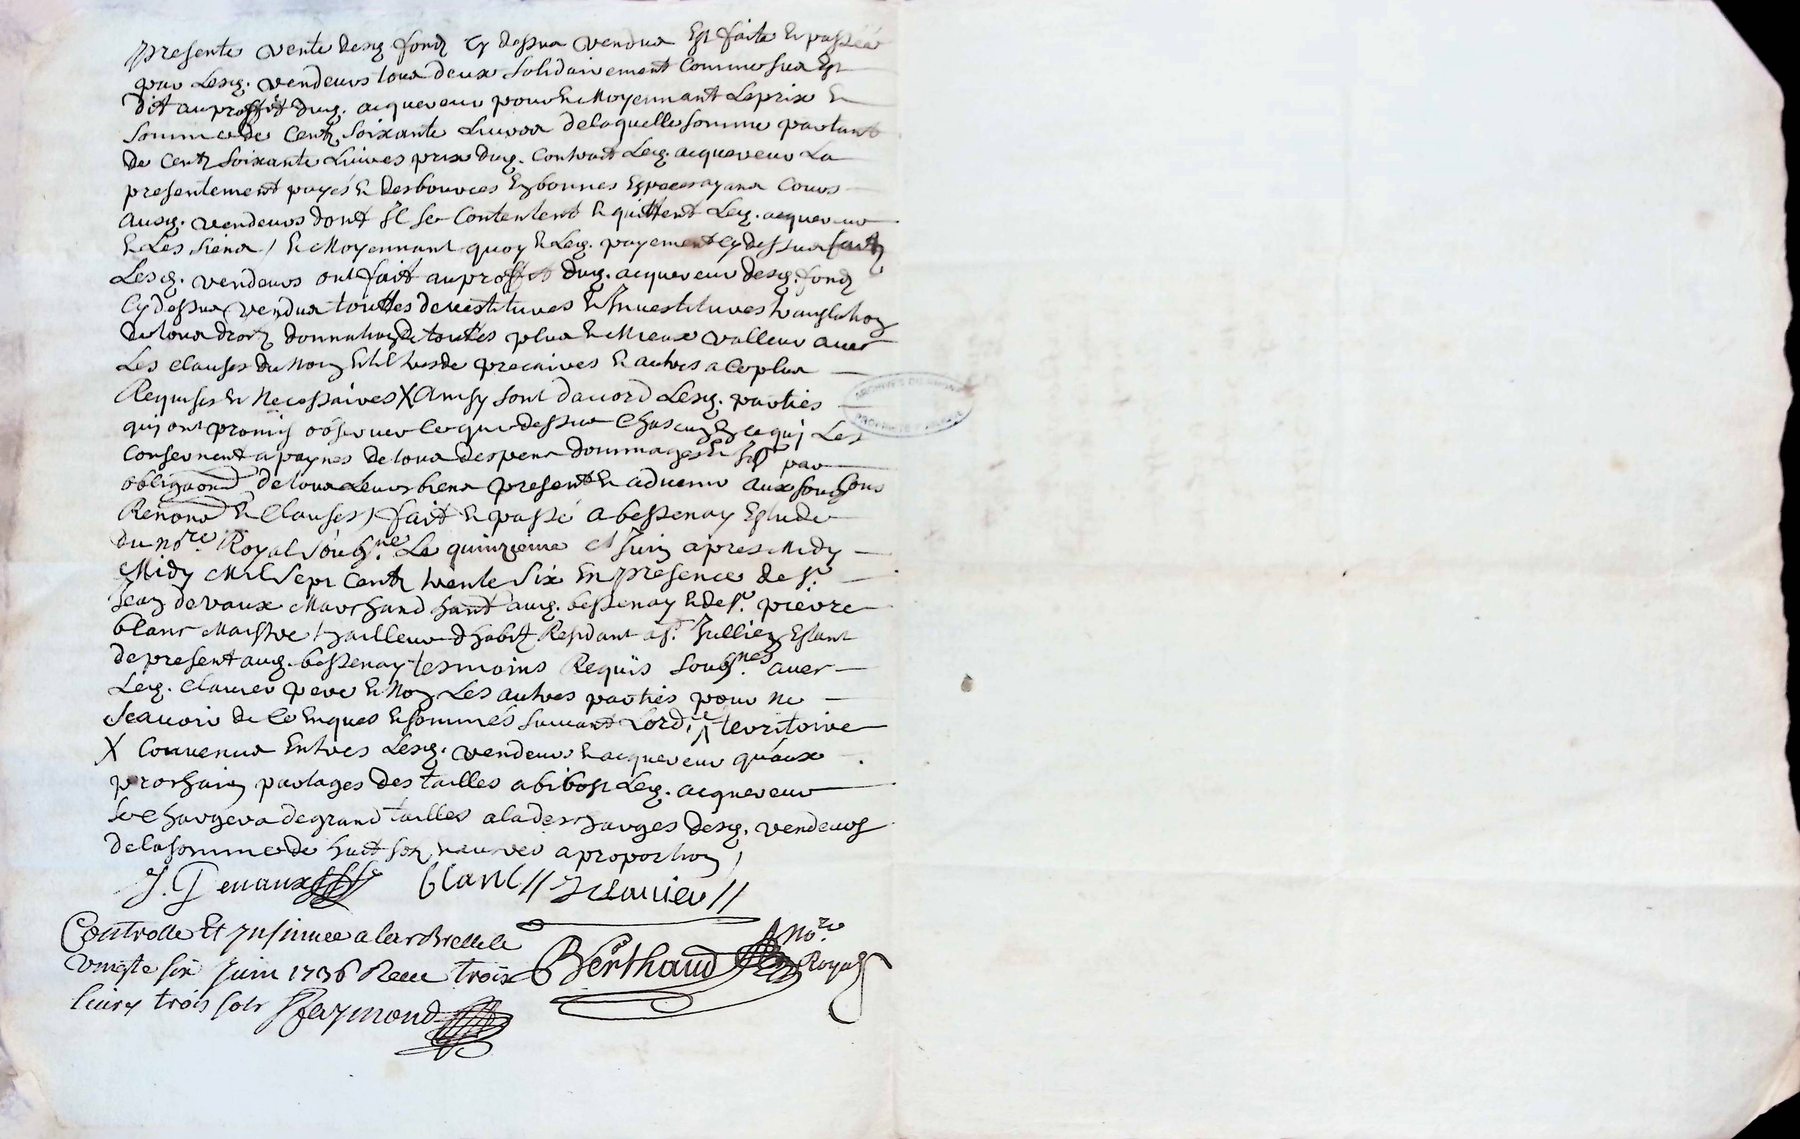 presente vente desq. fondz cy dessus vendus Est faite & passeé
par Lesq. vendeurs tous deux solidairement Comme sus Est
dit au proffit duq. acquereur pour & Moyennant Le prix &
somme de Centz soixante Livres de laquelle somme partant
de Centz soixante Livres prix duq. Contrait Leq. acquereur La
presentement payés & desbourcés En bonnes Especes ayans Cours
ausq. vendeurs dont Il se Contentent & quittent Leq. acquereur
& Les siens / & Moyennant quoy & Leq. payement cy dessus faitz
Lesq. vendeurs ont fait au proffit duq. acquereur desq. fondz
Cy dessus vendus touttes devestitures & Investitures translation
de tous droitz donnation de toutes plus & Mieux valleur avec
Les clauses du Nom & tiltres de precaires & autres a Ce plus
Requises & Necessaires X Ainsy sont d'acord Lesq. parties
qui ont promis observer Ce que dessus Chascun En ce qui Les
Consernent a paynes de tous despens dommages &
obligaond de tous Leurs biens present & advenir aux
Renond & Clauses / fait & passé a bessenay Estude
du nore Royal soubne Le quinzieme Juin apres Midy
Midy Mil sept Centz trente six En presence de sr.
Jean devaux Marchand hant auq. bessenay & de sr. pierre
blanc Maistre thailleur d'habitz Residant a st. Jullien Estant
de present auq. bessenay tesmoins Requis soubsnes avec
Leq. Clavier pere & Non Les autres parties pour ne
scavoir de Ce Enques & sommés suivant Lordce territoire
X Convenus Entres Lesq. vendeurs & acquereur qu'aux
prochain partages des tailles a bibost Leq. acquereur
se Chargera de grand tailles a la descharges desq. vendeurs
de la somme de huit sol a proportion /
J. Devaux blanc // J Clavier //
Controlle Et Insinuee a larbrelle le
vingte six Juin 1736 Receu trois
livres trois sols Raymond
Berthaud nore Royal